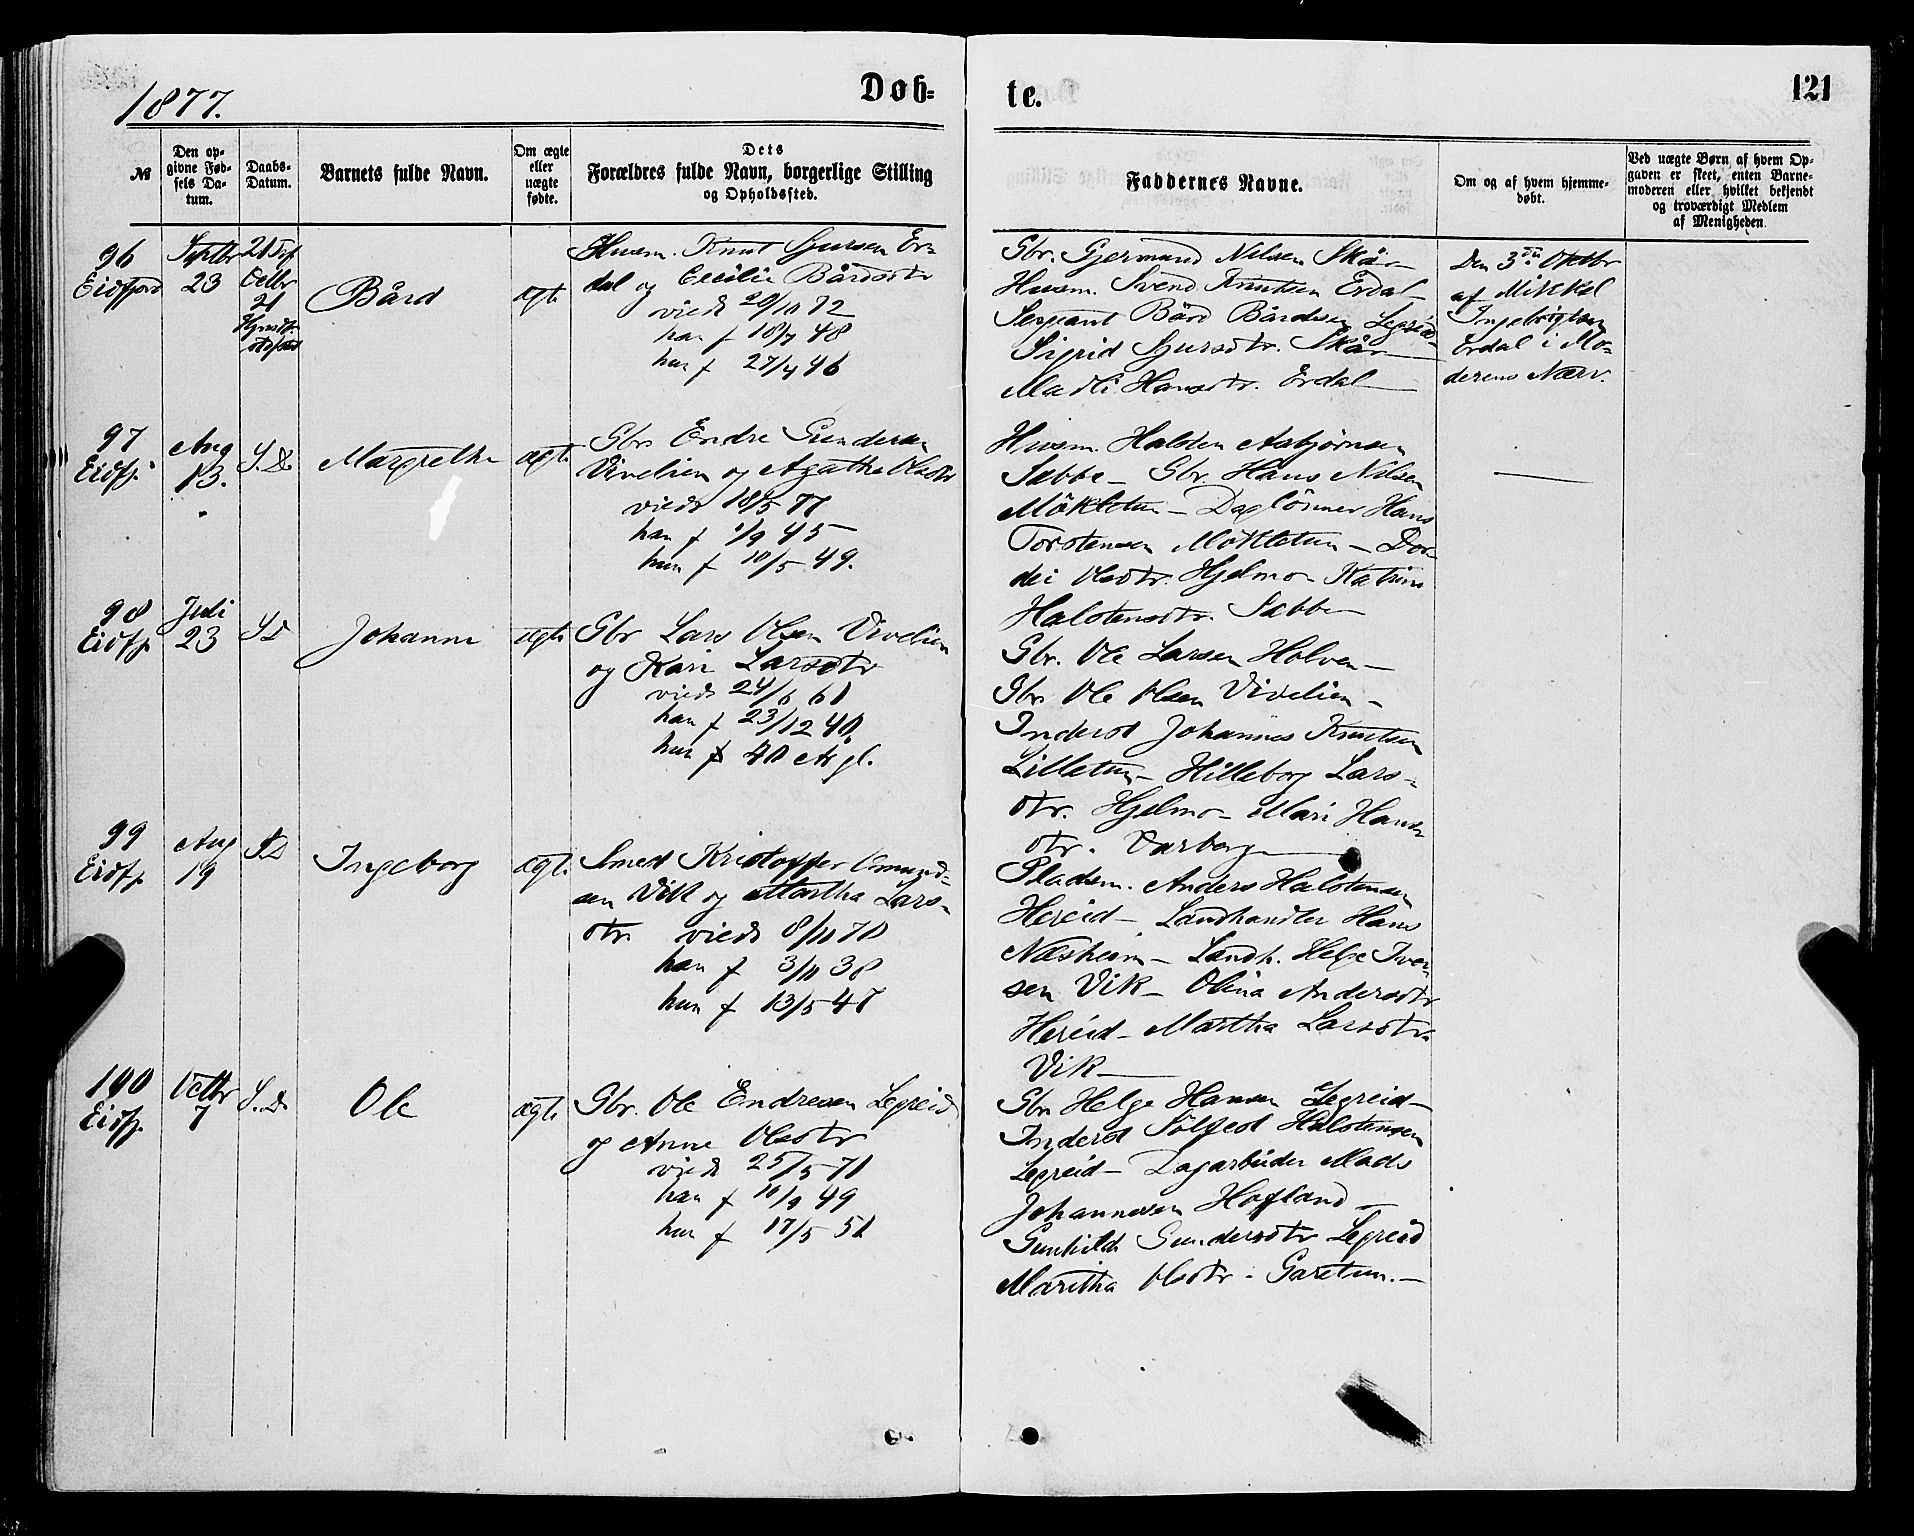 1877.
Døb-
te.
121
№
Den op-
givne Fød-
sels Da-
tum.
Daabs-
Datum.
Barnets fulde Navn.
Om ægte
eller
uægte
fødte.
Dets
Forældres fulde Navn, borgerlige Stilling
og Opholdssted.
Faddernes Navne.
Om og af hvem hjemme-
døbt.
Ved uægte Børn af hvem Op-
gaven er skeet, enten Barne-
moderen eller hvilket bekjendt
og troværdigt Medlem
af Menigheden.
96
Eidfjord
Septbr
23
Octbr
21
Bård
ægt.
Husm. Knut Sjursen Er-
dal og Cecilie Bårdsdtr
viede 20/10 72
han f 18/7 48
hun f 27/4 46
Gbr. Gjermund Nilsen Skår
Husm. Svend Knutsen Erdal
Sergeant Bård Bårdsen Legreid
Sigrid Sjursdtr. Skår
Madli Hansdtr. Erdal
Den 3die Oktbr
af Mikkel
Ingebrigtsen
Erdal i Mo-
derens Nærv.
97
Eidfj.
Aug
13.
S. D.
Margrethe
ægt.
Gbr. Endre Gundersen
Vivelien og Agatha Olsdtr
viede 18/5 77
han f 1/9 45
hun f 10/5 49.
Husm. Halsten Asbjørnsen
Sæbbe - Gbr. Hans Nilsen
Møkletun - Daglönner Hans
Torstensen Møkletun - Dor-
dei Olsdtr. Hjelmo - Katrine
Halstensdtr. Sæbbe
98
Eidfj.
Juli
23
S D
Johanne
ægt.
Gbr Lars Olsen Vivelien
og Kari Larsdtr
viede 24/6 61
han f 23/12 40
hun f 40 År gl.
Gbr. Ole Larsen Holven -
Gbr Ole Olsen Vivelien -
Inderst Johannes Knutsen
Lilletun - Hilleborg Lars-
dtr. Hjelmo - Mari Hans-
dtr. Varberg
99
Eidfj.
Aug
19
S.D
Ingeborg
ægt.
Smed Kristoffer Omund-
sen Vik og Martha Lars-
dtr viede 8/10 70
han f 3/11 38
hun f 13/5 47
Pladsm. Anders Halstensen
Hereid - Landhandler Hans
Næsheim - Landh. Helge Iver-
sen Vik - Olina Andersdtr
Hereid - Martha Larsdtr
Vik
100
Eidfj.
Octbr
7
S. D.
Ole
ægt.
Gbr. Ole Endresen Legreid
og Anne Olsdtr
viede 25/5 71
han f 10/9 49
hun f 17/5 51
Gbr Helge Hansen Legreid -
Inderst Sölfest Halstensen
Legreid - Dagarbeider Mads
Johannesen Hofland
Gunhild Gundersdtr Legreid
Maritha Olsdtr - Garetun.